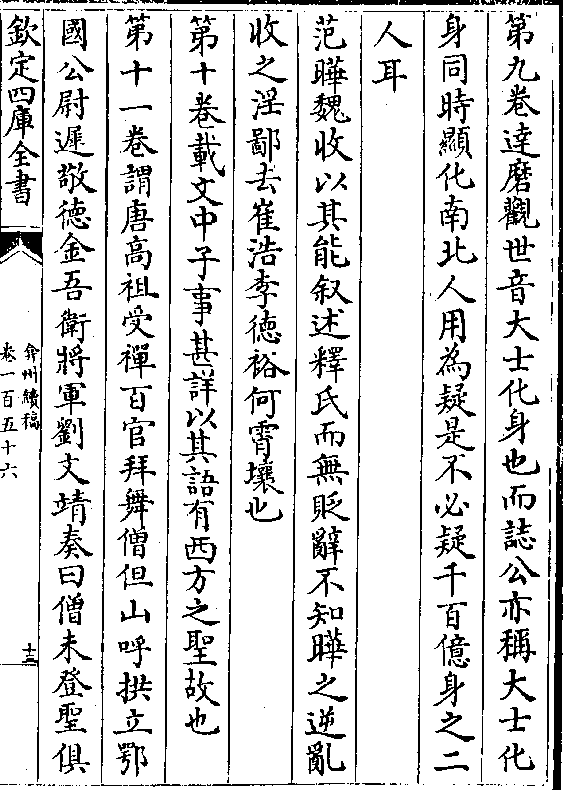 第九卷達磨觀世音大士化身也而誌公亦稱大士化
身同時顯化南北人用為疑是不必疑千百億身之二
人耳
范曄魏收以其能叙述釋氏而無貶辭不知曄之逆亂
收之淫鄙去崔浩李德裕何霄壤也
第十卷載文中子事甚詳以其語有西方之聖故也
第十一卷謂唐高祖受禪百官拜舞僧但山呼拱立鄂
國公尉遲敬德金吾衛將軍劉文靖奏曰僧未登聖俱
欽定四庫全書
弇州續稿
卷一百五十六
十三